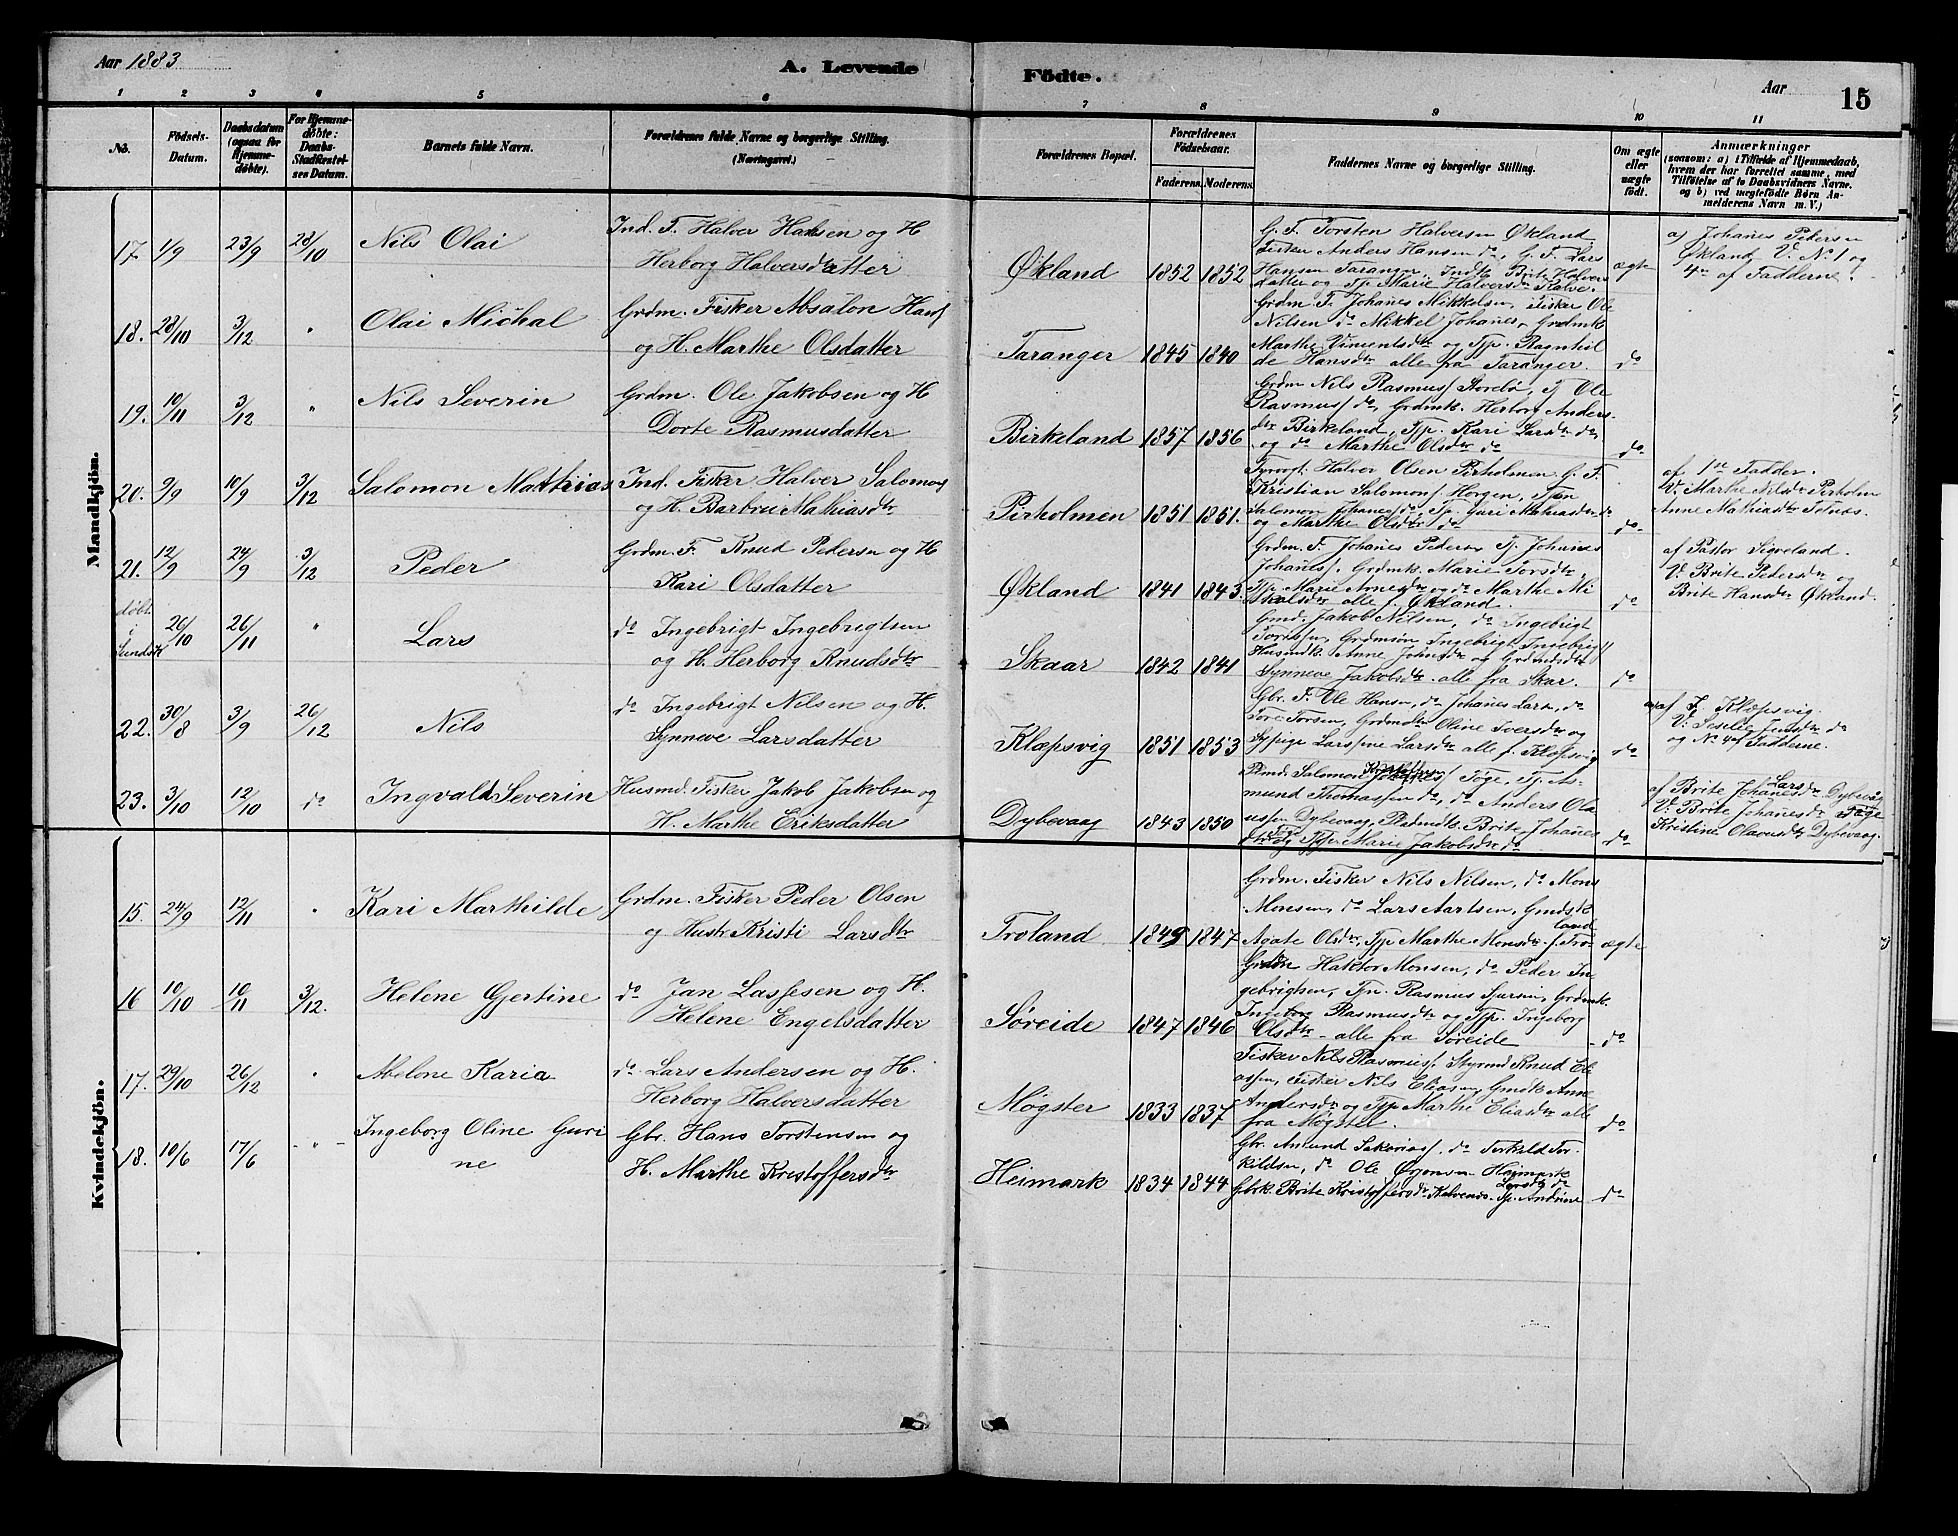 Aar 1883
A. Levende
Födte.
Aar
15
1 2 3 4 5 6 7 8 9 10 11
No.
Födsels-
Datum.
Daabsdatum
(ogsaa for
Hjemme-
døbte).
For Hjemme-
døbte:
Daabs-
Stadfæstel-
ses Datum.
Barnets fulde Navn.
Forældrenes fulde Navne og borgerlige Stilling.
(Næringsvei.)
Forældrenes Bopæl.
Forældrenes
Födselsaar.
Faderens. Moderens.
Faddernes Navne og borgerlige Stilling.
Om ægte
eller
uægte
födt.
Anmærkninger
(saasom: a) i Tilfælde af Hjemmedaab,
hvem der har forrettet samme, med
Tilföielse af to Daabsvidners Navne.
og b) ved uægtefödte Börn An-
melderens Navn m. V.)
Mandkjön.
17. 1/9 23/9 28/10 Nils Olai
Ind. F. Halver Hansen og H
Herborg Halversdatter
Økland 1852 1852
G. F. Torsten Halversen Økland
Fisker Anders Hansen do, G. F. Lars
Hansen Taranger, Indk Brite Halvers
datter og Tp. Marie Halversdtr Kalve.
ægte
a) Johanes Pedersen
Økland V. No 1 og
4 af Fadderne.
18. 28/10 3/12 " Olai Michal
Grdm. Fisker Absalon Hans
og H. Marthe Olsdatter
Taranger 1845 1840
Grdm. F. Johanes Mikkelsen, Fisker Ole
Nilsen do Mikkel Johanes, Grdmk
Marthe Vincentsdtr og Tjp. Ragnhil
de Hansdtr alle fra Taranger.
do
19. 10/11 3/12 " Nils Severin
Grdm. Ole Jakobsen og H
Dorte Rasmusdatter
Birkeland 1857 1856
Grdm Nils Rasmus/ Storebø, Tj Ole
Rasmus/ do, Grdmk. Herborg Anders
dtr Birkeland, Tjp. Kari Larsdtr do,
og do Marthe Olsdtr do
do
20. 9/9 10/9 3/12 Salomon Mathias
Ind. Fisker Halver Salomons
og H. Barbru Mathiasdtr
Pirholmen 1851 1851.
Fyrvogt. Halver Olsen Pirholmen G. F.
Kristian Salomon/ Horgen, Tjn
Salomon Johanes/ do, Tp. Guri Mathiasdtr do
og Marthe Olsdtr do
do
af 1ste Fadder.
V. Marthe Nilsdtr Pirholm
Anne Mathiasdtr
21. 12/9 24/9 3/12 Peder
Grdm. F. Knud Pedersn og H
Kari Olsdatter
Økland 1841 1843.
Grdm. F. Johanes Pedersen Tj. Johanes
Johanes/. Grdmk. Marie Torsdtr
Tjp Marie Arnesdtr og do Marthe Mi
kalsdtr alle f. Økland.
do
af Pastor Sigveland.
V. Brite Pedersdtr og
Brite Hansdtr Økland.
døbt
i
Sundsk
26/10 26/11 " Lars
do Ingebrigt Ingebrigtsen
og H. Herborg Knudsdtr
Skaar 1842 1841
Gmd. Jakob Nilsen, do Ingebrigt
Torresen, Grdmsøn Ingebrigt Ingebrig//
Husmdk. Anne Johnsdtr og Grdmdsdtr
Synneve Jakobsdtr alle fra Skar.
do
22. 30/8 3/9 26/12 Nils
do Ingebrigt Nilsen og H.
Synneve Larsdatter
Klæpsvig 1851 1853
Gbr. F. Ole Hansn, do Johanes Larsn, do
Tore Torsen, Grdmdtr Oline Iversdtr og
Sypige Larssine Larsdtr alle f. Klæpsvig
do
af J. Klæpsvig.
V. Seselie Jensdtr do
og No 4 af Fadderne.
23. 3/10 12/10 do Ingvald Severin
Husmd. Fisker Jakob Jakobsn og
H. Marthe Eriksdatter
Dybevaag 1843 1850
Salomon Föge, Tp. As-
mund Thomassen do, do Anders Ola
ussen Dybevaag, Brite Johanes
dtr og Tjp Marie Jakobsdtr do
do
af Brite Johanesdtr Dybevåg
V. Brite Johanesdtr Føge
Kristine Olavusdtr Dybevaag.
Kvindekjön.
15. 24/9 12/11 " Kari Marthilde
Grdm. Fisker Peder Olsen
og Hustr Kristi Larsdtr
Troland 1849 1847
Grdm. Fisker Nils Nilsen, do Mons
Monsen, do Lars Aartsen, Gmdsk
Agate Olsdtr, Tjp Marthe Monsdtr f. Tro
land
ægte
16 10/10 10/11 3/12. Helene Gjertine
do Jan Lassesen og H.
Helene Engelsdatter
Søreide 1847 1846
Grdm Haktor Monsen, do Peder In
gebrigtsen, Tjn. Rasmus Sjursn, Grdmk.
Ingebor Rasmusdtr og Tjp. Ingeborg
Olsdtr alle fra Søreide
do
17. 29/10 26/12 " Abelone Karia
do Lars Andersen og H.
Herborg Halversdatter
Møgster 1833 1837
Fisker Nils Rasmus/. Styrmd Knud Eli
assen, Fisker Nils Eliasn, Gmdk Anne
Andersdtr og Tjp Marthe Eliasdtr alle
fra Møgster.
do
18. 10/6 17/6 - " - Ingeborg Oline Guri
ne
Gbr. Hans Torstensen og
H. Marthe Kristoffersdtr
Heimark 1834 1844
Gbr. Amund Sakarias/. do Terkeld Tor-
kildsn, do Ole Heimark
Gbrk. Brite Kristoffersdtr Kalvenes. Tp. Andrine
Larsdtr do
do